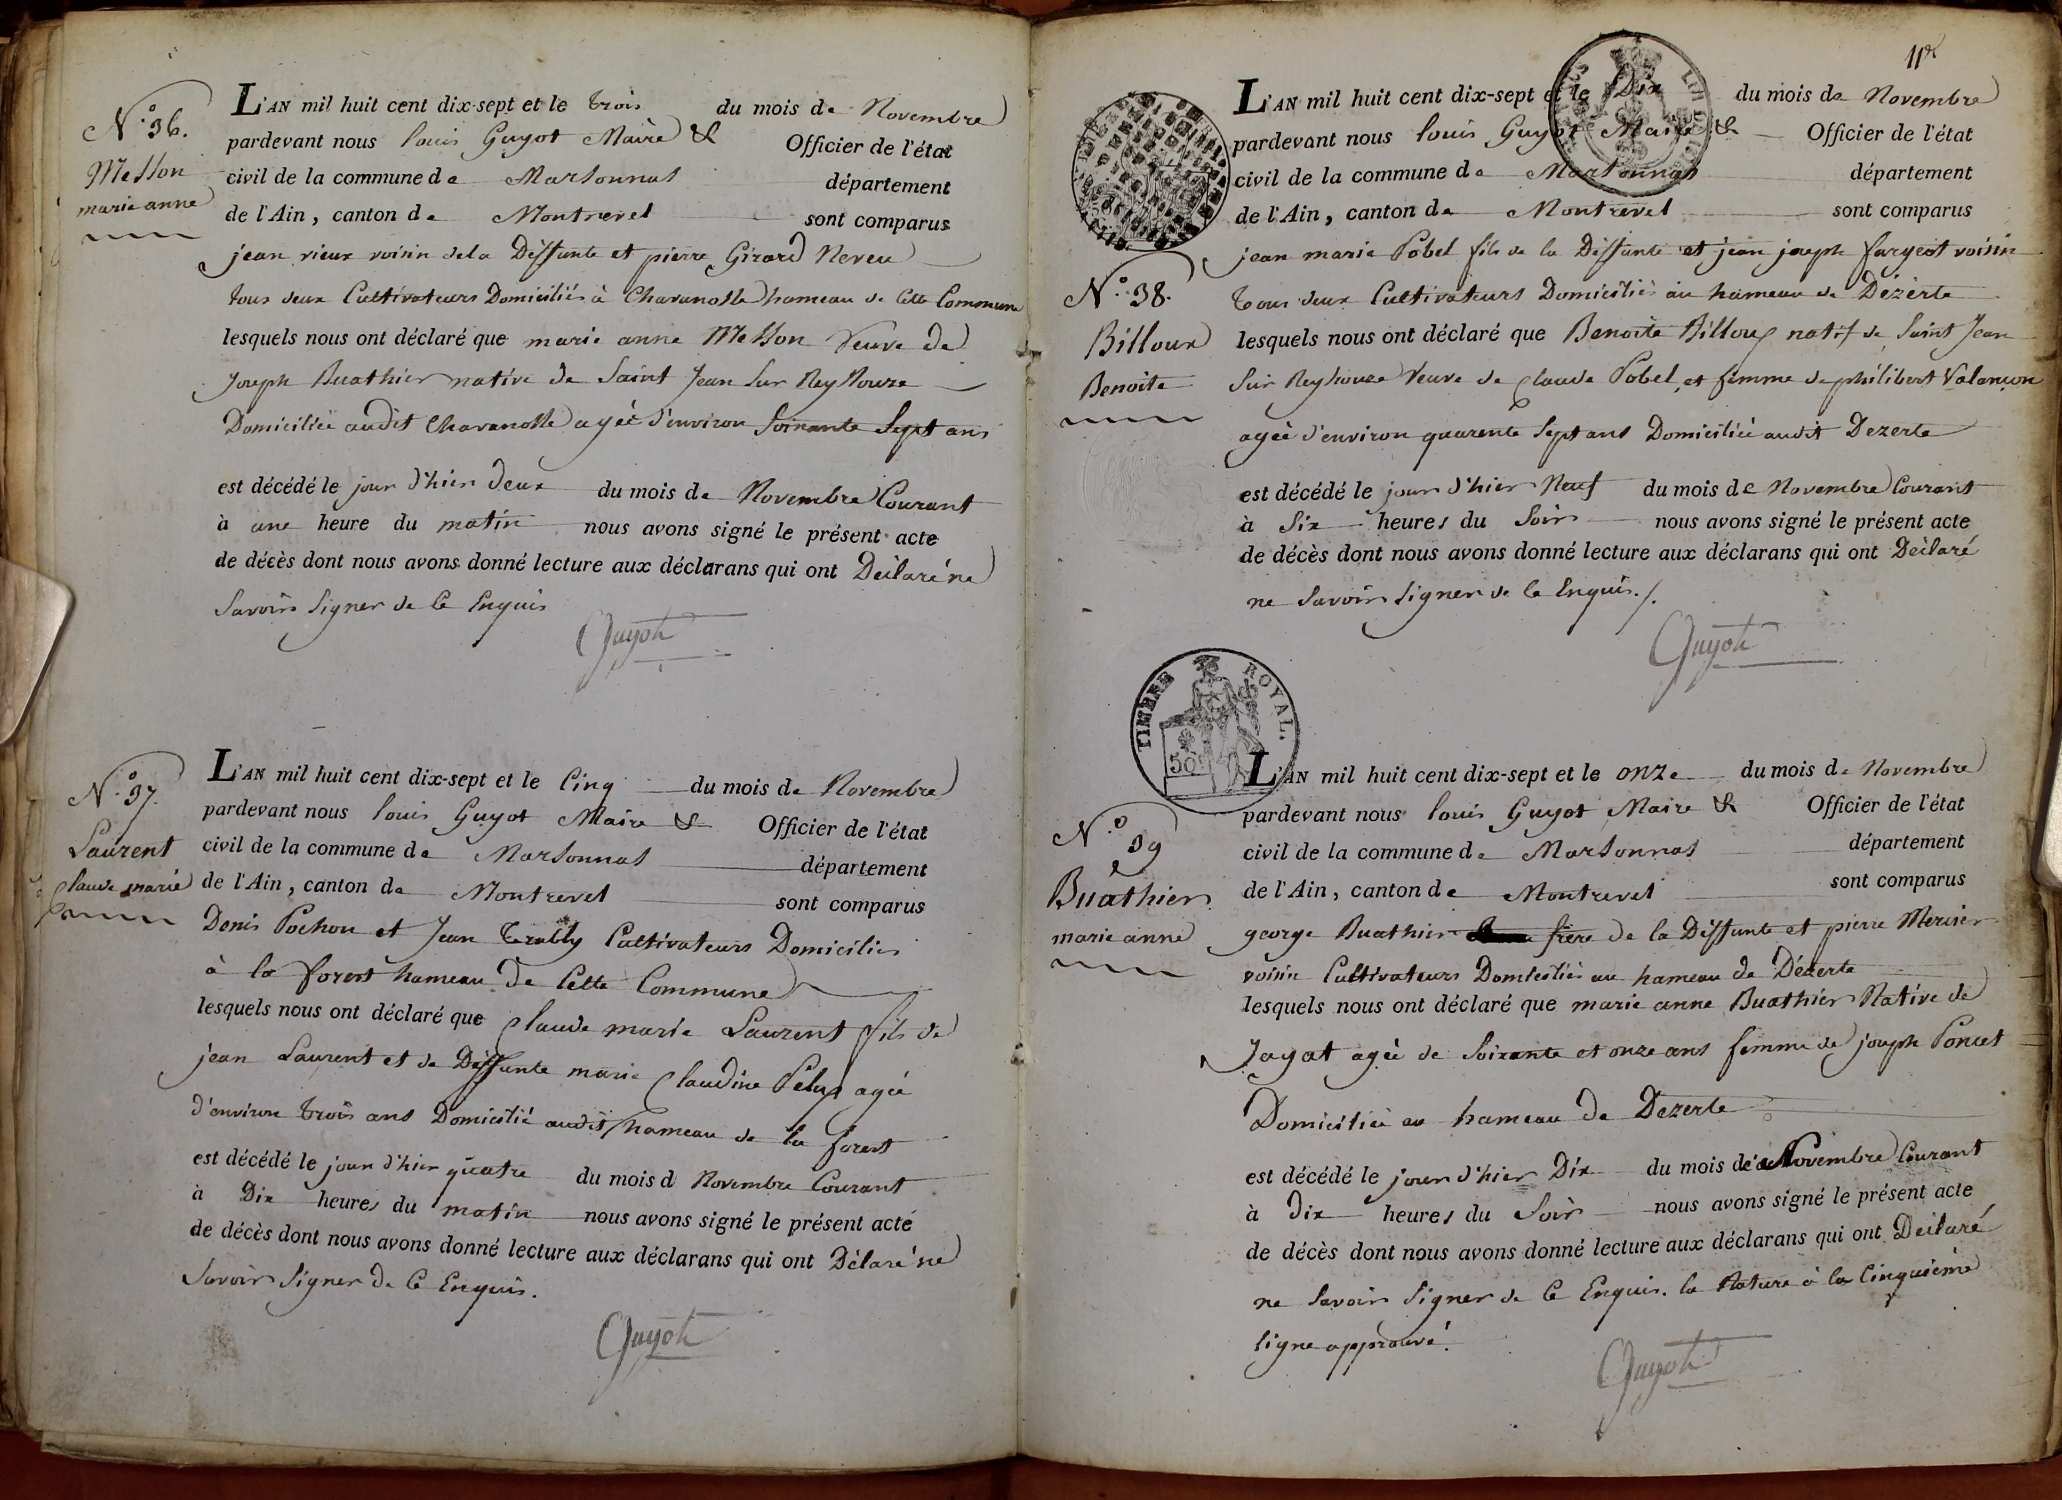 N.° 36.
Messon
marie anne
L'AN mil huit cent dix-sept et le trois du mois de Novembre
pardevant nous louis Guyot Maire & Officier de l'état
civil de la commune de Marsonnas département
de l'Ain, canton de Montrevel sont comparus
jean vieux voisin de la Deffunte et pierre Girard Neveu
tous deux Cultivateurs Domiciliés à Chavanosse hameau de Cette Commune
lesquels nous ont déclaré que marie anne Messon Veuve de
Joseph Buathier native de Saint Jean Sur Reyssouze
Domiciliée audit Chavanosse agée d'environ Soixante Sept ans
est décédé le jour d'hier deux du mois de Novembre Courant
à une heure du matin nous avons signé le présent acte
de décès dont nous avons donné lecture aux déclarans qui ont Déclaré ne
Savoir Signer de Ce Enquis
Guyot
N.° 37.
Laurent
Claude marie
L'AN mil huit cent dix-sept et le Cinq du mois de Novembre
pardevant nous louis Guyot Maire & Officier de l'état
civil de la commune de Marsonnas département
de l'Ain, canton de Montrevel sont comparus
Denis Pochon et Jean Cultivateurs Domiciliés
à la forest hameau de Cette Commune
lesquels nous ont déclaré que Claude marie Laurent fils de
jean Laurent et de Deffunte marie Claudine agée
d'environ trois ans Domicilié audit hameau de la forest
est décédé le jour d'hier quatre du mois d Novembre Courant
à Dix heures du matin nous avons signé le présent acte
de décès dont nous avons donné lecture aux déclarans qui ont Délaré ne
Savoir Signer de Ce Enquis.
Guyot
L'AN mil huit cent dix-sept et le Dix du mois de Novembre
pardevant nous louis Guyot Maire & Officier de l'état
civil de la commune de Marsonnas département
de l'Ain, canton de Montrevel sont comparus
jean marie Pobel fils de la Deffunte et jean joseph fargeot voisin
N.° 38.
Billoux
Benoite
tous deux Cultivateurs Domiciliés au hameau de Dézerte
lesquels nous ont déclaré que Benoite Billoux natif de Saint Jean
Sur Reyssouze Veuve de Claude Pobel et femme de philibert Valançon
agée d'environ quarente Sept ans Domiciliée audit Dezerte
est décédé le jour d'hier Neuf du mois de Novembre Courant
à Six heures du Soir nous avons signé le présent acte
de décès dont nous avons donné lecture aux déclarans qui ont Déclaré
ne Savoir Signer de Ce Enquis./.
Guyot
TIMBRE ROYAL.
50
N.° 39
Buathier
marie anne
L'AN mil huit cent dix-sept et le onze du mois de Novembre
pardevant nous louis Guyot Maire & Officier de l'état
civil de la commune de Marsonnas département
de l'Ain, canton de Montrevel sont comparus
george Buathier frère de la Deffunte et pierre Mercier
voisin Cultivateurs Domiciliés au hameau de Dézerte
lesquels nous ont déclaré que marie anne Buathier Native de
Jayat agée de Soixante et onze ans femme de joseph Poncet
Domiciliée au hameau de Dezerte
est décédé le jour d'hier Dix du mois de Novembre Courant
à Dix heures du Soir nous avons signé le présent acte
de décès dont nous avons donné lecture aux déclarans qui ont Déclaré
ne Savoir Signer de Ce Enquis. la Rature à la Cinquième
ligne approuvé.
Guyot